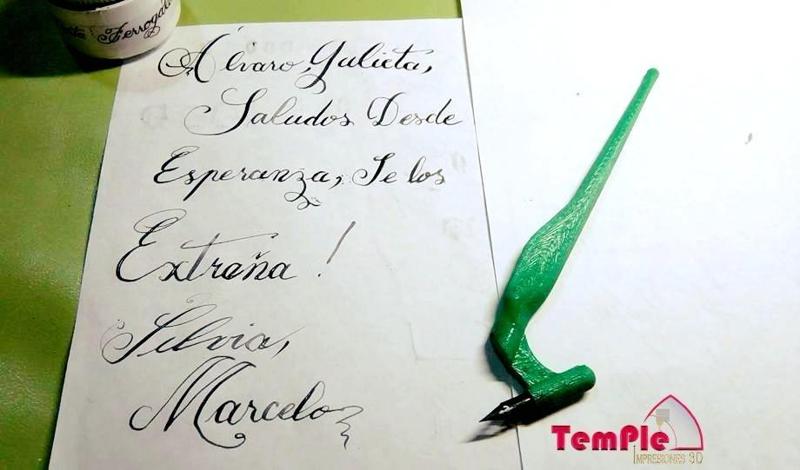 Ferrogál
Álvaro, Julieta,
Saludos Desde
Esperanza, Se los
Extraña !
Silvia,
Marcelo
TemPle
IMPRESIONES 3D